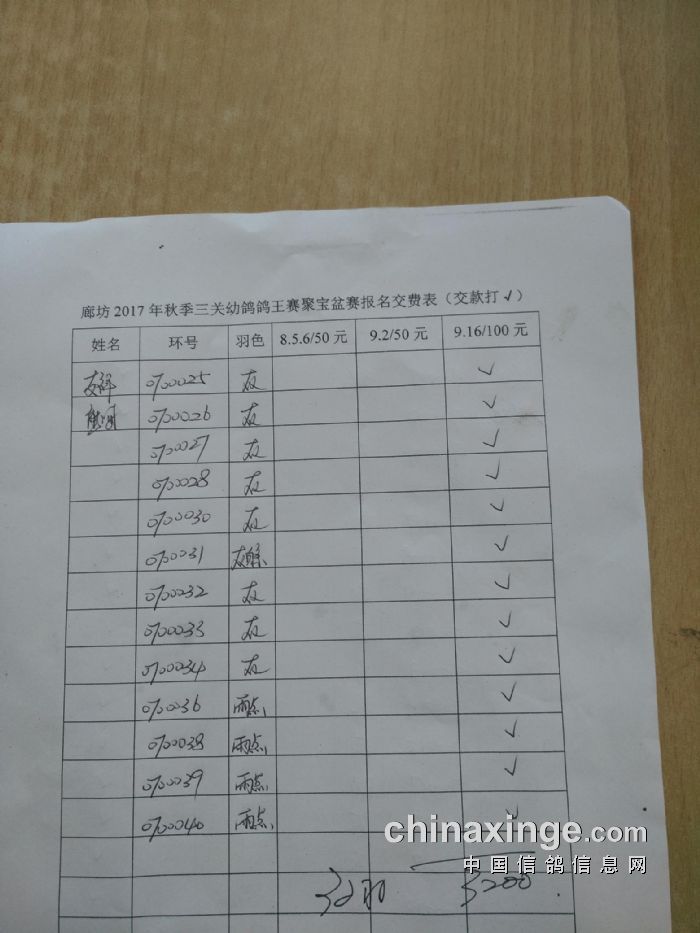 廊坊 2017 年秋季三关幼鸽鸽王赛聚宝盆赛报名交费表（交款打 √）
姓名 环号 羽色 8.5.6/50 元 9.2/50 元 9.16/100 元
0700025 灰 √
0700026 灰 √
0700027 灰 √
0700028 灰 √
0700030 灰 √
0700031 灰 √
0700032 灰 √
0700033 灰 √
0700034 灰 √
0700036 雨点 √
0700038 雨点 √
0700039 雨点 √
0700040 雨点 √
chinaxinge.com
中国信鸽信息网
32羽 3200